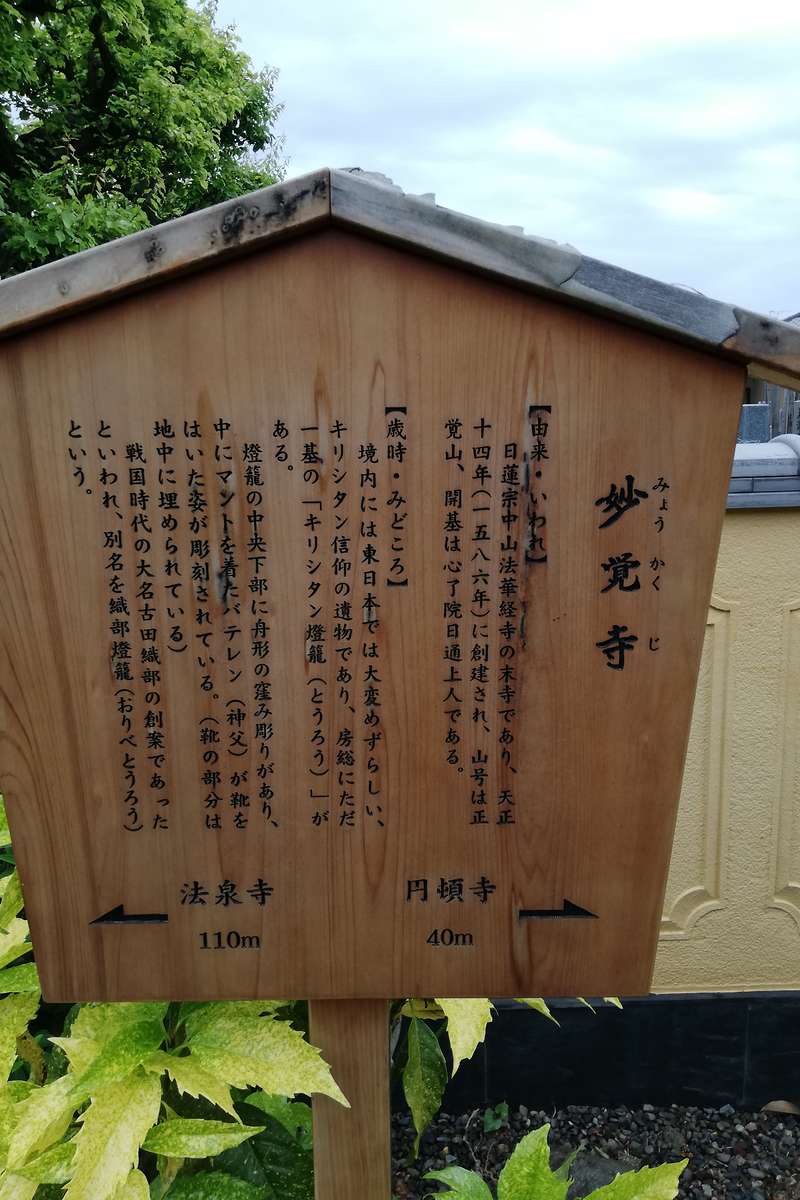 妙覚寺
みょう かく じ
【由来・いわれ】
日蓮宗中山法華経寺の末寺であり、天正
十四年(一五八六年)に創建され、山号は正
覚山、開基は心了院日通上人である。
【歳時・みどころ】
境内には東日本では大変めずらしい、
キリシタン信仰の遺物であり、房総にただ
一基の「キリシタン燈籠(とうろう)」が
ある。
燈籠の中央下部に舟形の窪み彫りがあり、
中にマントを着たバテレン(神父)が靴を
はいた姿が彫刻されている。(靴の部分は
地中に埋められている)
戦国時代の大名古田織部の創業であった
といわれ、別名を織部燈籠(おりべとうろう)
という。
円頓寺
40m
法泉寺
110m